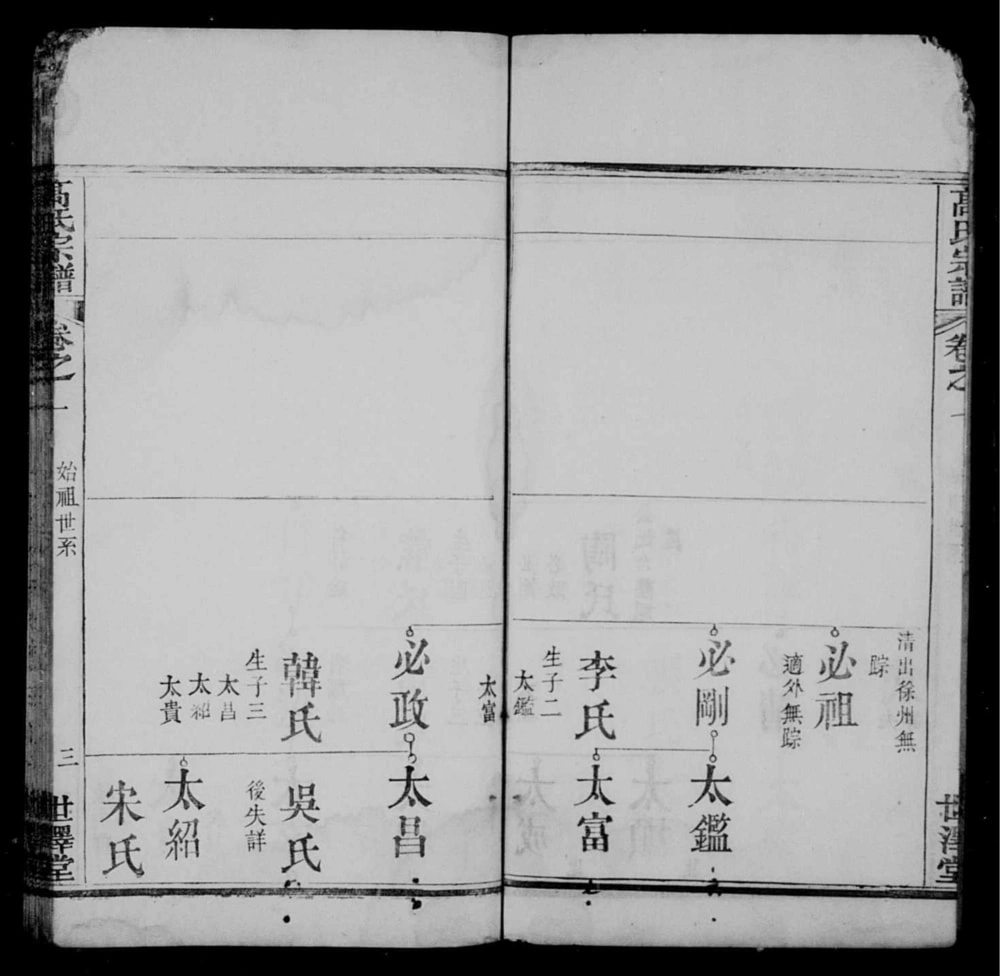 高氏宗譜
卷之一
世澤堂
清出徐州無
踪
必祖
適外無踪
必剛
太鑑
李氏
太富
生子二
太鑑
太富
必政
太昌
韓氏
吳氏
生子三
後失詳
太昌
太紹
太貴
太紹
宋氏
高氏宗譜
卷之一
始祖世系
三
世澤堂